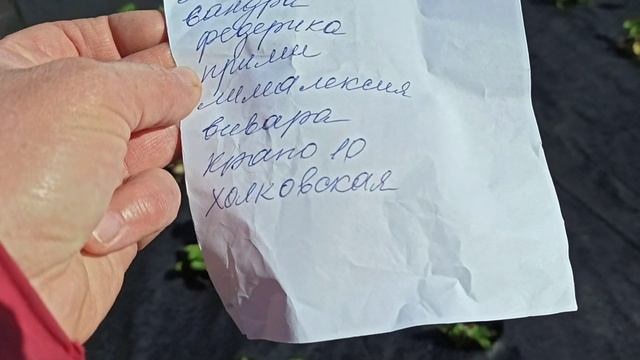 вандри
федерика
прими
лималексия
вивара
крапо 10
холковская